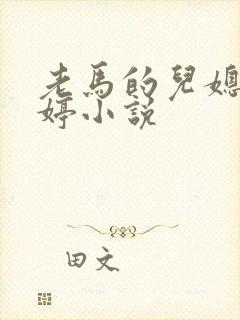 老馬的兒媳
婷小説
田文